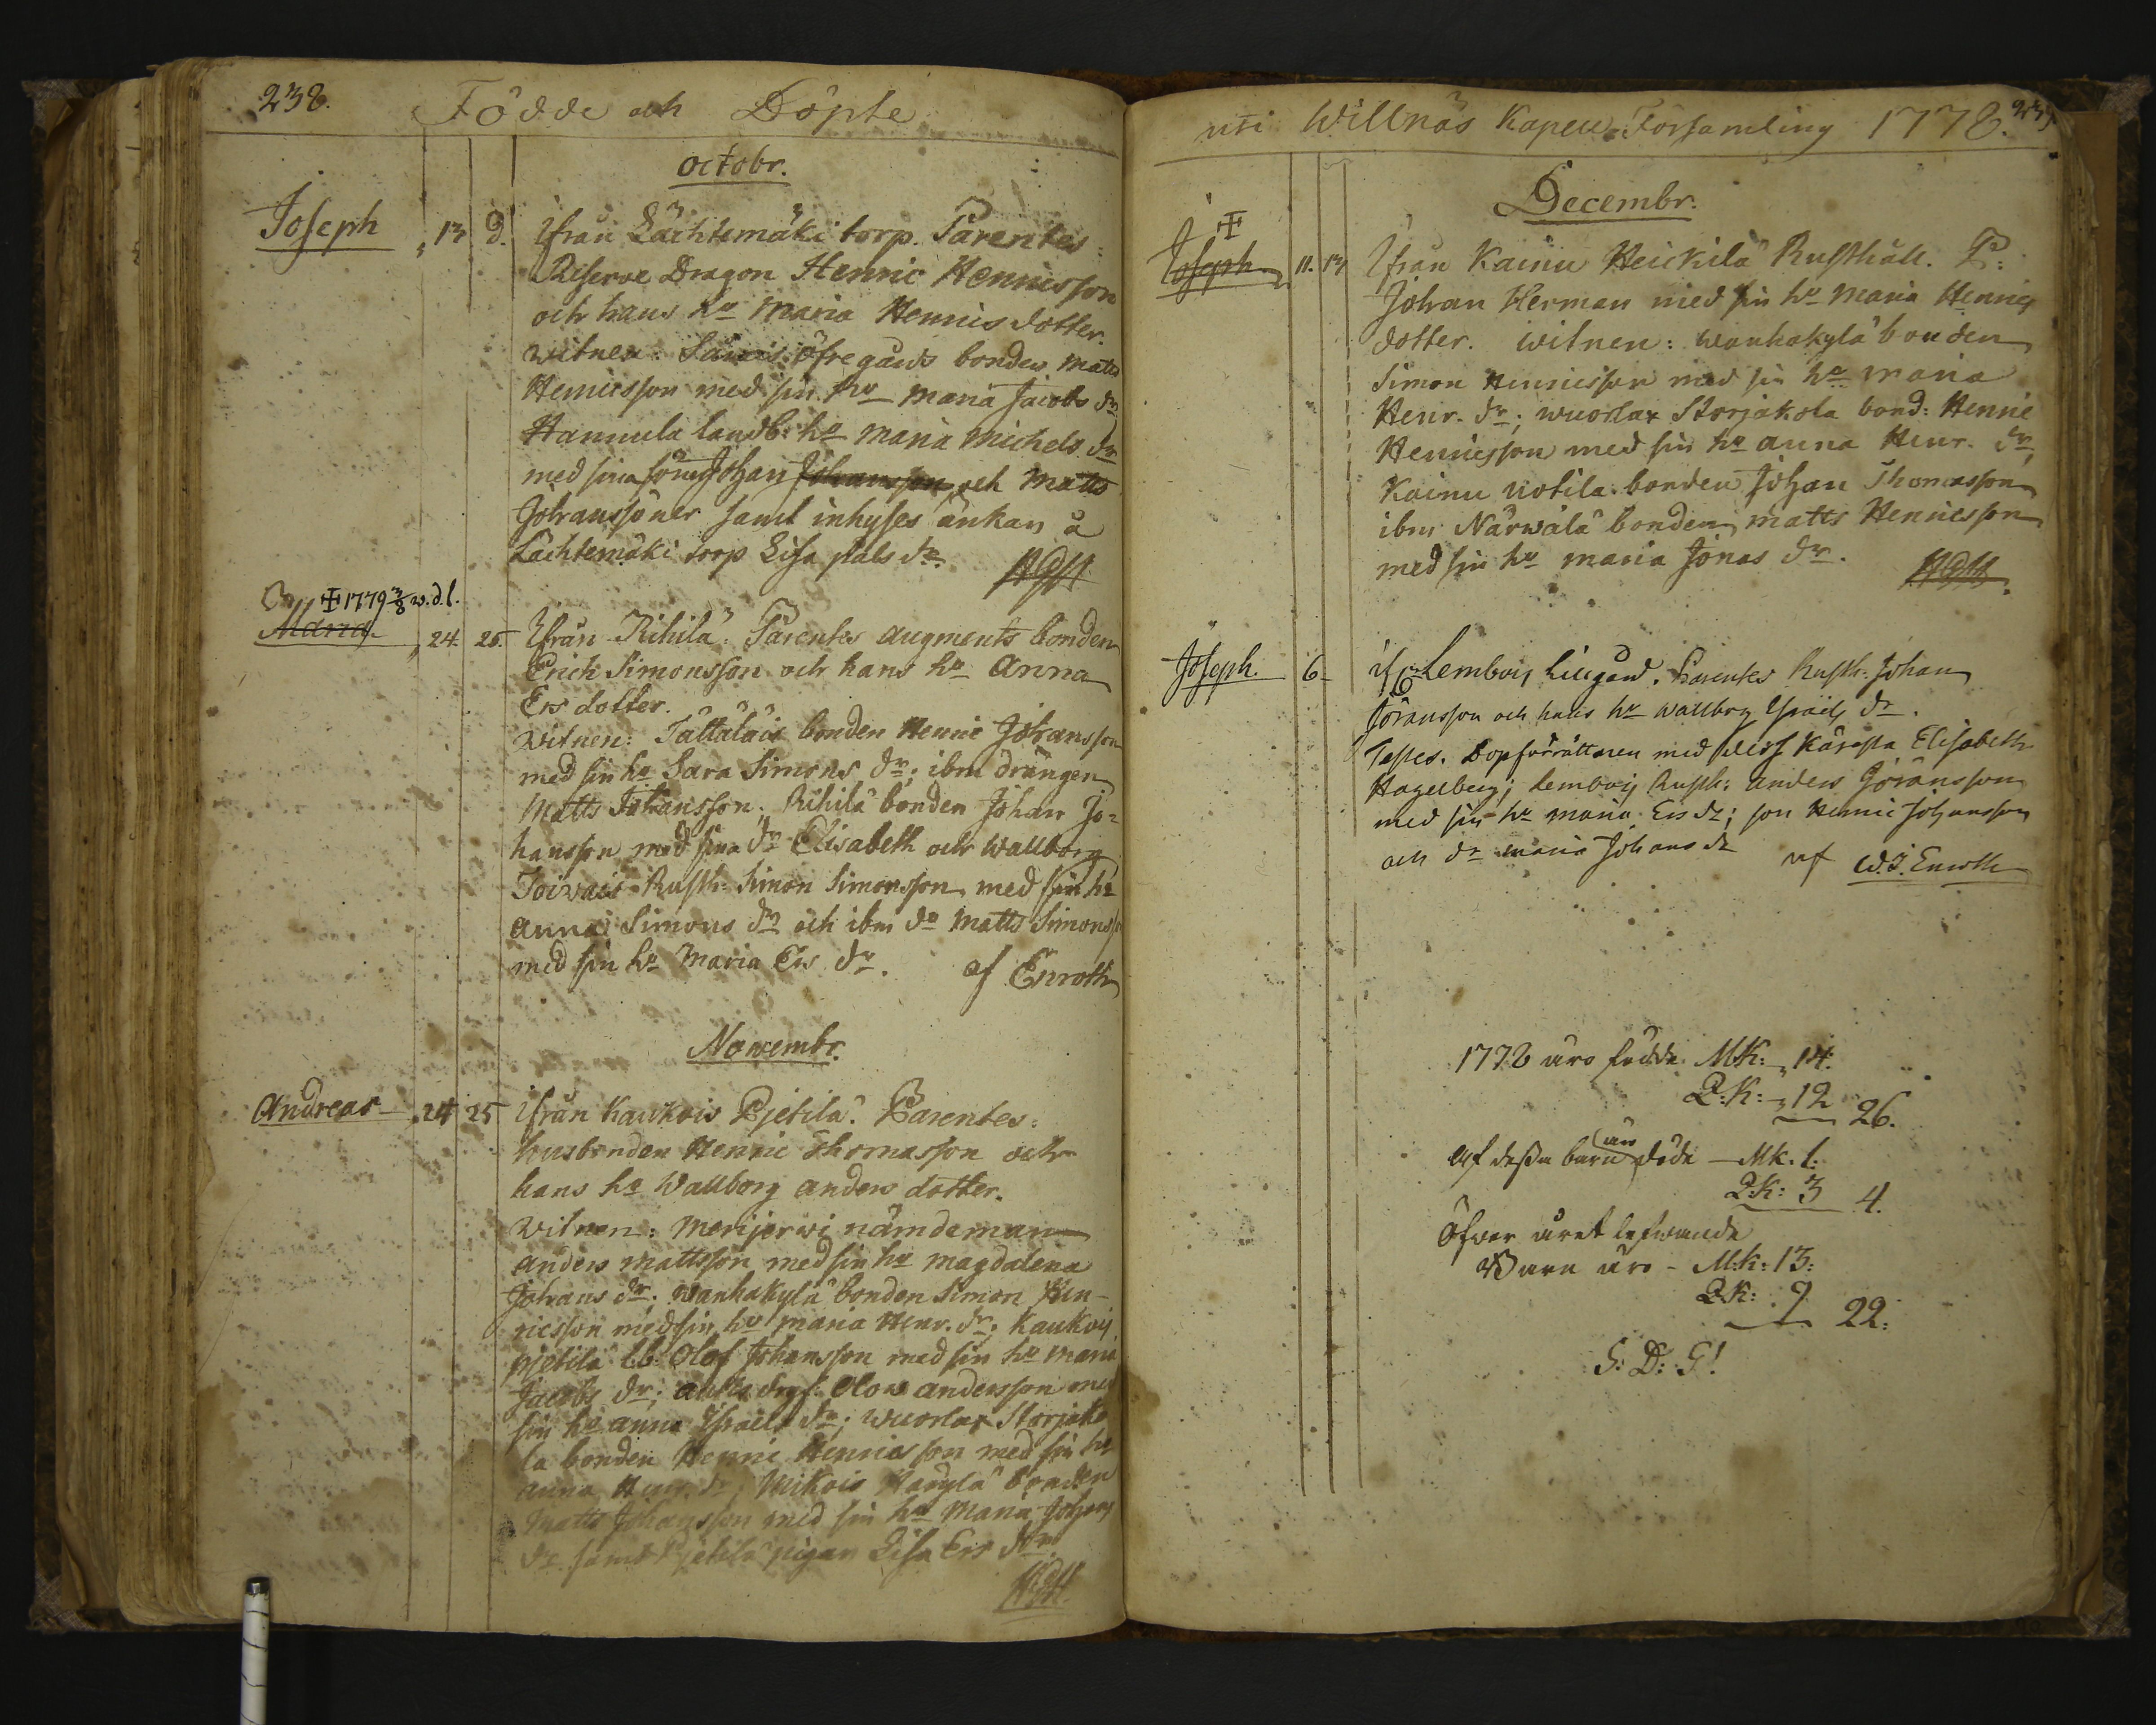 238.
Födde och Döpte
octobr.
Joseph 13 d. Ifrån Lächtemäki torp. Parentes:
Reserve Dragon Henric Henricsson
och hans ha Maria Henricsdotter.
witnen: Säuris öfregårds bonden Matts
Henricsson med sin ha Maria Jacobs dr
Hannula landb: ha Maria Michels dr
med sina söner Johan Johansson och Matts
Johanssöner samt inhyses änkan å
Lächtemäki torp Lisa Påls dr.
+ 1779 3/8 w.d.l.
Maria 24. 25. Ifrån Rihilä. Parentes augments bonden
Erick Simonsson och hans ha Anna
Ers dotter.
witnen: Tättäläis bonden Henric Johansson
med sin ha Sara Simons dr; ibm drängen
Matts Johansson. Rihilä bonden Johan Jo=
hansson med sina dr Elisabeth och Wallborg
Toivais Rusth: Simon Simonsson med sin ha
anna Simons dr och ibm do Matts Simonss
med sin ha Maria Ers dr. af Enroth
Novembr.
Andreas 24 25 ifrån Kaukois Pjetilä. Parentes:
husbonden Henric Thomasson och
hans ha Wallborg anders dotter.
witnen: Merijerwi nämdeman
anders mattsson med sin ha magdalena
Johans dr. wanhakylä bonden Simon Hen-
ricsson med sin ha maria Henr. dr; Kaukois
pjetilä lb. Olof Johansson med sin ha maria
Jacobs dr; Olow andersson med
sin ha anna Israels dr; wuorlax Storjako
la bonden Henric Henricsson med sin ha
anna Henr. dr; Mikois bonden
Matts Johansson med sin ha Maria Johans
dr samt Pjetilä pigan Lisa Ers dr.
uti Willnäs Kapell Församling 1778. 239
Decembr.
+
Joseph 11. 13 Ifrån Kainu Heickilä Rusthåll. P:
Johan Herman med sin ha Maria Henrics
dotter. witnen: wanhakylä bonden
Simon Henricsson med sin ha maria
Henr. dr; wuorlax Storjakola bond: Henric
Henricsson med sin ha anna Henr. dr,
Kainu uotila bonden Johan Thomasson
ibm Närwälä bonden matts Henricsson
med sin ha maria Jonas dr.
Joseph. 6 Lembois Lillgård. Parentes Rusth: Johan
Göransson och hans ha Wallborg Israels dr.
Testes. Dopförrättaren med dess Käresta Elisabeth
Hagelberg; Lembois Rusth: anders Göransson
med sin ha maria Ers dr; son Henric Johansson
och dr maria Johans dr af W.J. Enroth
1778 äro födde MK: 14.
Q:K: 12 26.
Af dessa barn äro döde — Mk. 1.
Q:K: 3 4.
Öfver året lefwande
Barn äro - M:k: 13:
Q:K: 9 22:
S: D: G!